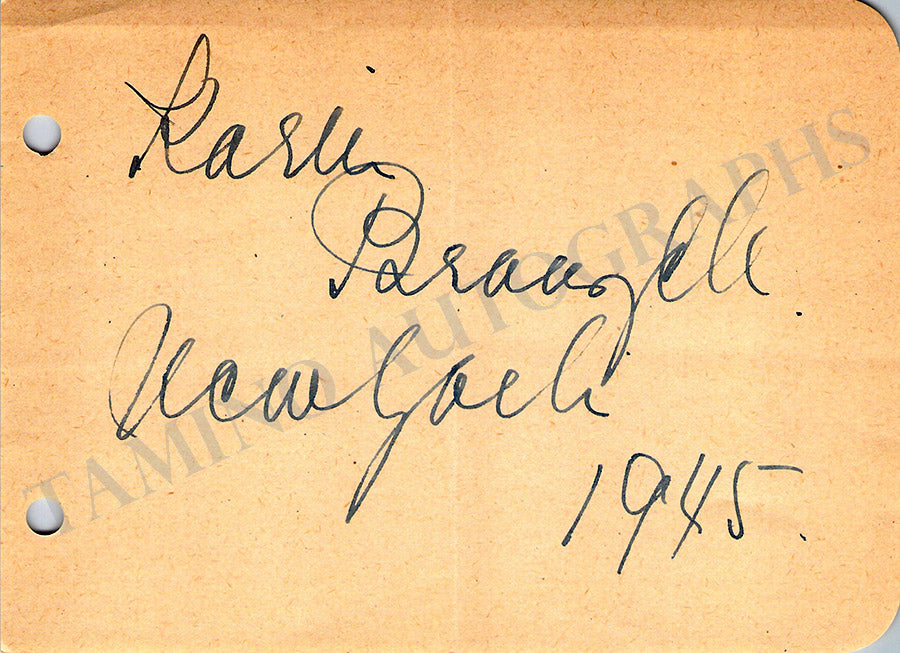 Karin
Branzell
New York
1945.
TAMINO AUTOGRAPHS